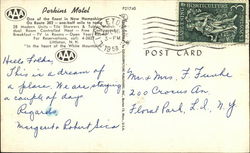 Perkins Motel
One of the finest in New Hampshire
On Route 302
26 Modern Units - Tile Showers & Tubs
Room Controlled Heat - Free
Breakfast - TV in Rooms - Open
For Reservations, call
Littleton, N. H.
"In the heart of the White Mountains"
AAA
1958
P21740
POST CARD
HORTICULTURE
3¢
Hello Folks,
This is a dream of
a place. We are staying
a couple of days
Regards
Margaret & Robert
Mr & Mrs. F. Funke
200 Crocus Av.
Floral Park, L.I. N.Y